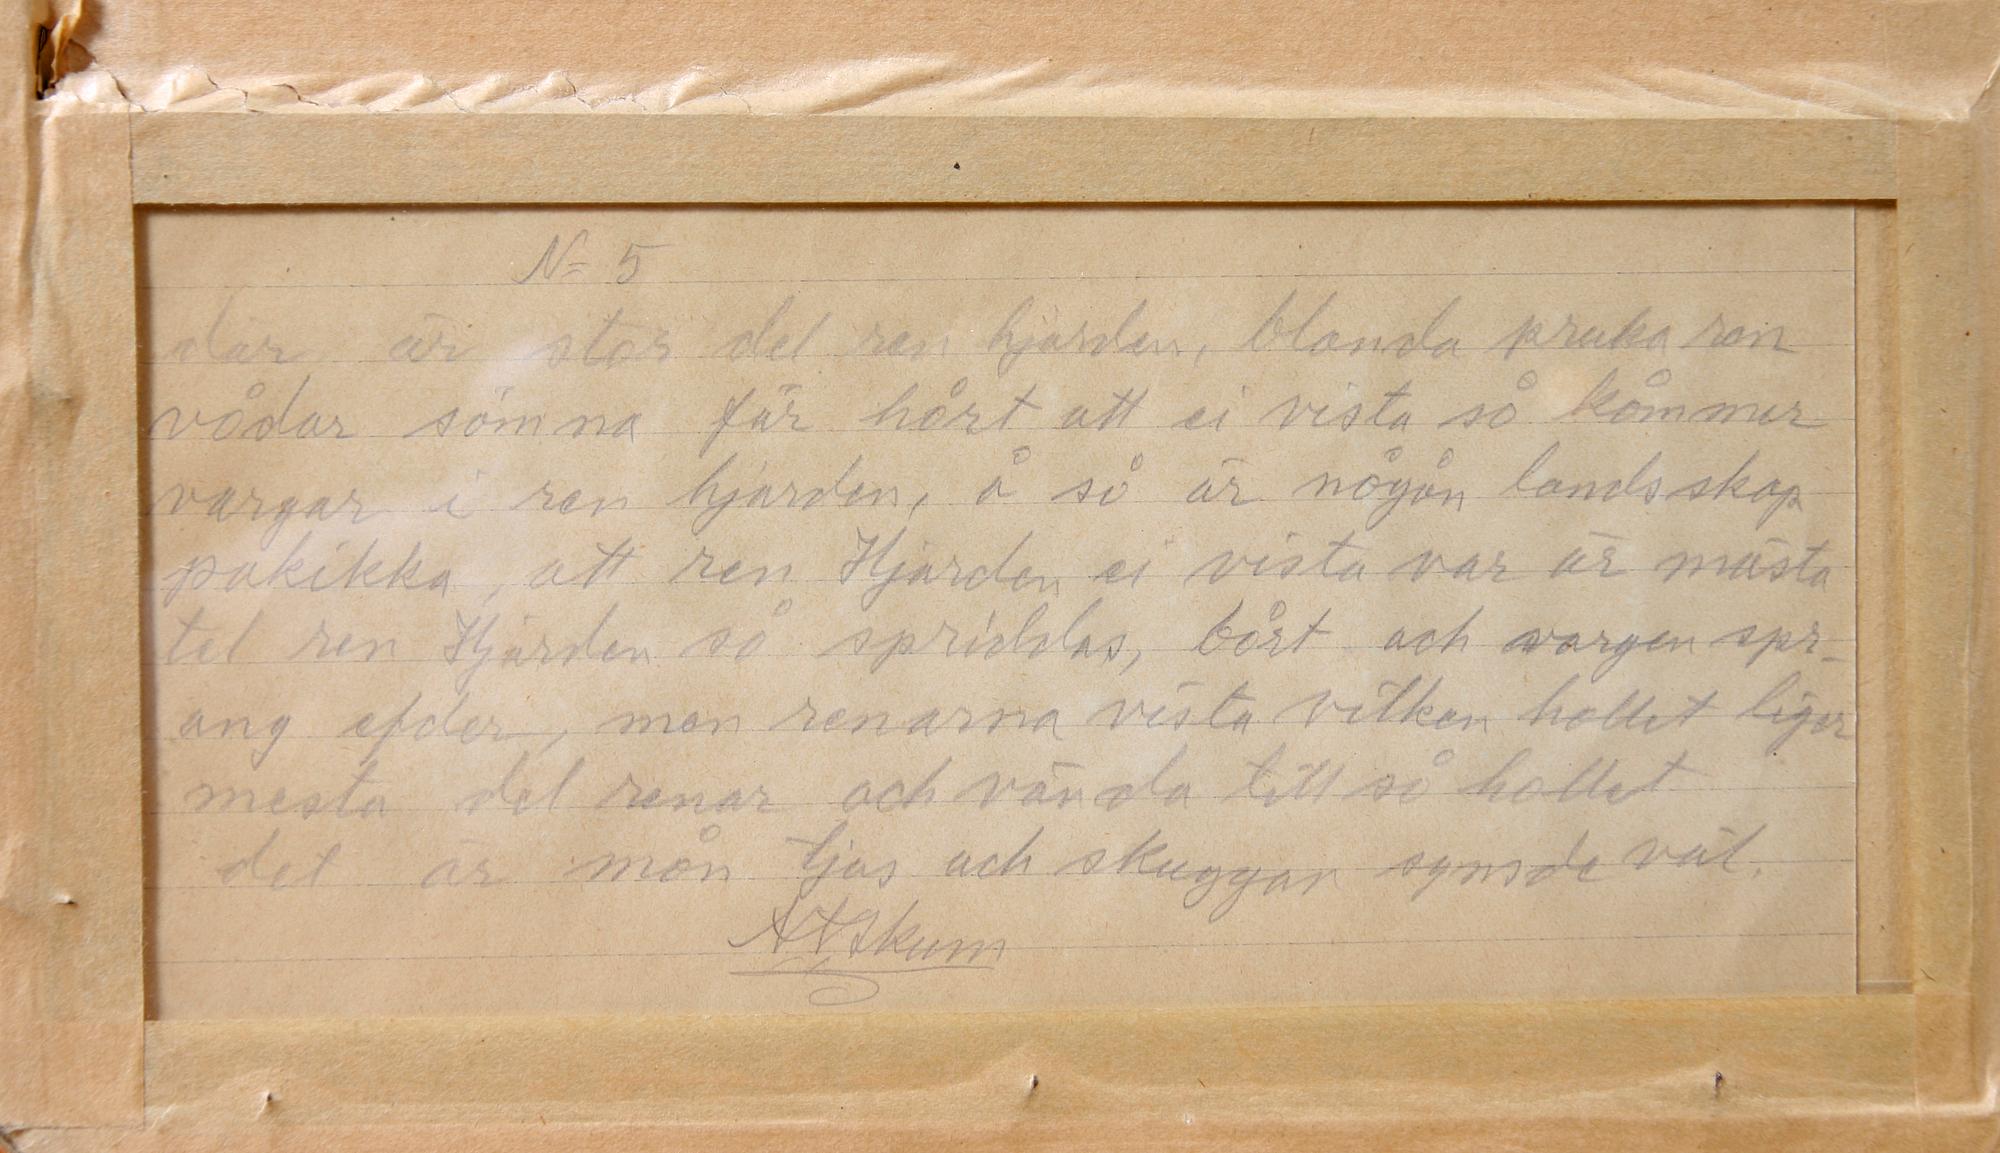 N= 5
där är stor del ren hjärden, blanda pruka ren
vådar sömna får hårt att ei vista så kåmmer
vargar i ren hjärden, å så är någån landsskap
påkikka, att ren Hjärden ei vista var är mästa
tel ren Hjärden så spriddas, bårt och vargen spr-
ang efder, men renarna vista vilken hallet liger
mesta del renar och vända till så hallet
det är mån ljus och skuggar synsde väl.
NNSkum